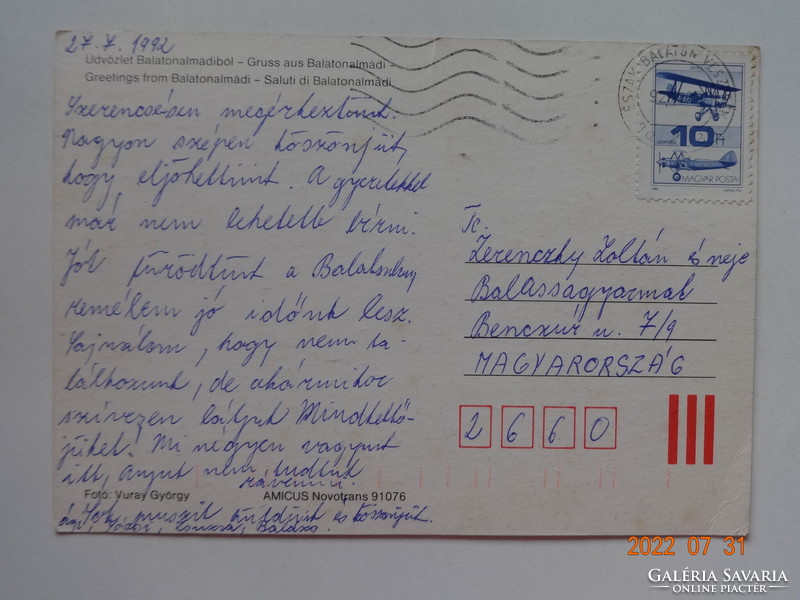 27. 7. 1992
Üdvözlet Balatonalmádiból – Gruss aus Balatonalmádi –
Greetings from Balatonalmádi – Saluti di Balatonalmádi
Szerencsésen megérkeztünk.
Nagyon szépen köszönjük,
hogy eljöhettünk. A gyerekekkel
már nem lehetett bírni.
Jól fürödtünk a Balatonban
remélem jó időnk lesz.
Sajnálom, hogy nem ta-
lálkozunk, de akármikor
szívesen látjuk Mindkettő-
jüket! Mi négyen vagyunk
itt, anyut nem tudtuk
rávenni.
Sok puszit küldünk és köszönjük.
Balázs.
Fotó: Vuray György
AMICUS Novotrans 91076
ÉSZAK-BALATON
10 Ft
MAGYAR POSTA
Tc.
Zerenczky Zoltán és neje
Balassagyarmat
Benczúr u. 7/9
MAGYARORSZÁG
2 6 6 0
2022 07 31
GALÉRIA SAVARIA
ONLINE PIACTÉR